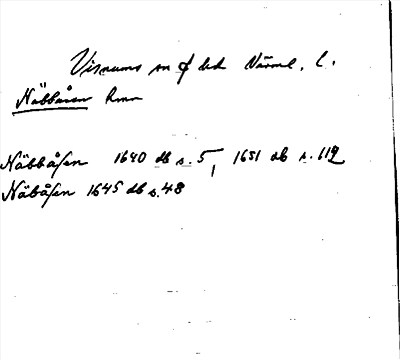 Visnums sn Värml. l.
Näbbåsen hmn
Näbbåsen 1640 db s. 5, 1651 db s. 119
Näbåsen 1645 db s. 48